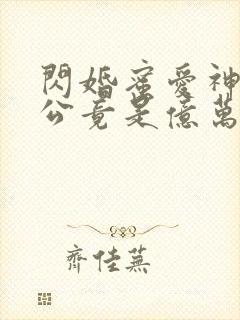 閃婚蜜愛神
公竟是億萬
齊佳蕪